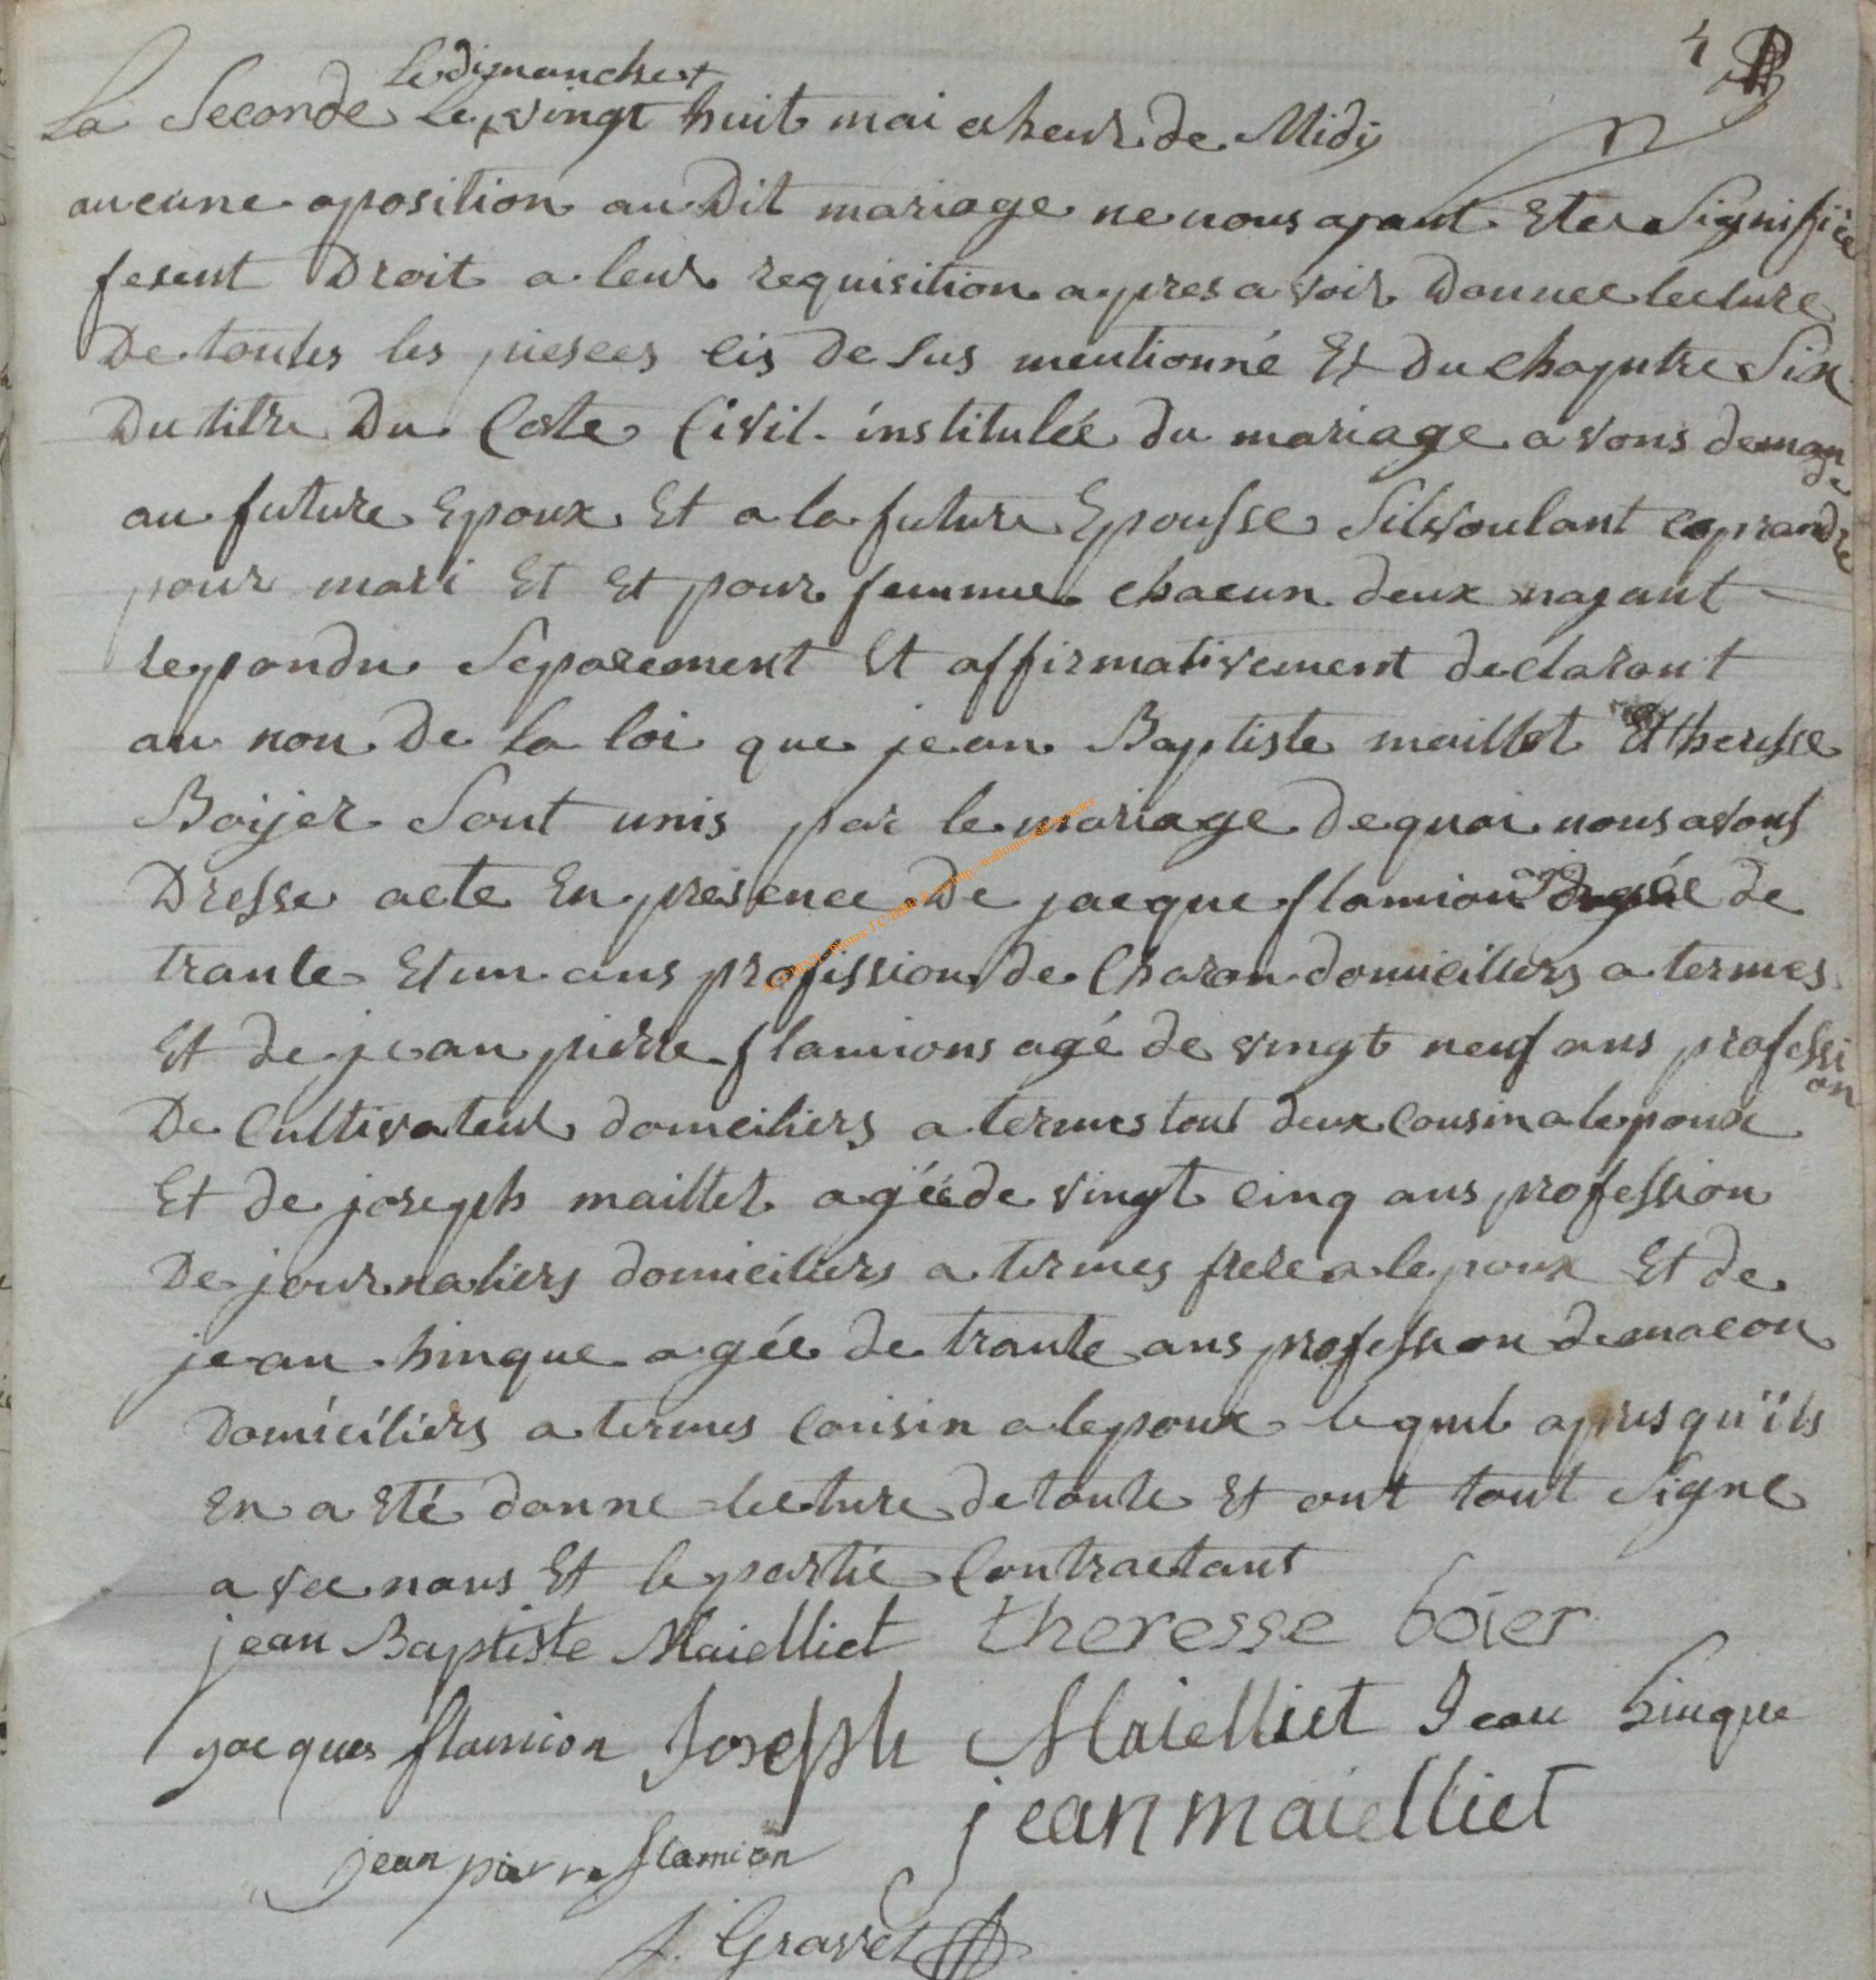 4
Le dimanche +
La Seconde Le vingt huit mai a heur de Midÿ
aucune oposition au Dit mariage ne nous ayant Etee Signifiée
fesent Droit a leur requisition apres avoir Donnee lecture
De toutes les pieses cis desus mentionné Et Du chapitre Six
Du titre Du Code Civil institulée du mariage avons demande
au future Epoux Et a la future Epousse Silsvoulant ce prandre
pour mari Et Et pour femme chacun deux nayant
repondu Separement Et affirmativement declaront
au non De la loi que jean Baptiste maillet Et theresse
Boijer Sont unis par le mariage de quoi nous avons
Dresse acte En presence De jacque flamion agée de
trante Et un ans profission de Charon domicilliers a termes
Et de jean pierre flamions agé de vingt neuf ans profession
De Cultivateur domciliers a termes tout deux Cousin a lepoux
Et de joseph maillet agéede vingt cinq ans profession
De journaliers domiciliers a termes frere a lepoux Et de
jean hinque agée de trante ans profession de macon
Domiciliérs a termes Cousin a lepoux lequel apres qu'ils
En a Eté donne lecture de toute Et ont tout Signe
avec nous Et le partie Contractans
jean Baptiste Maielliet theresse boier
jacques flamion Joseph Maielliet Jean hinque
jean maielliet
jean pierre flamion
J. Gravet